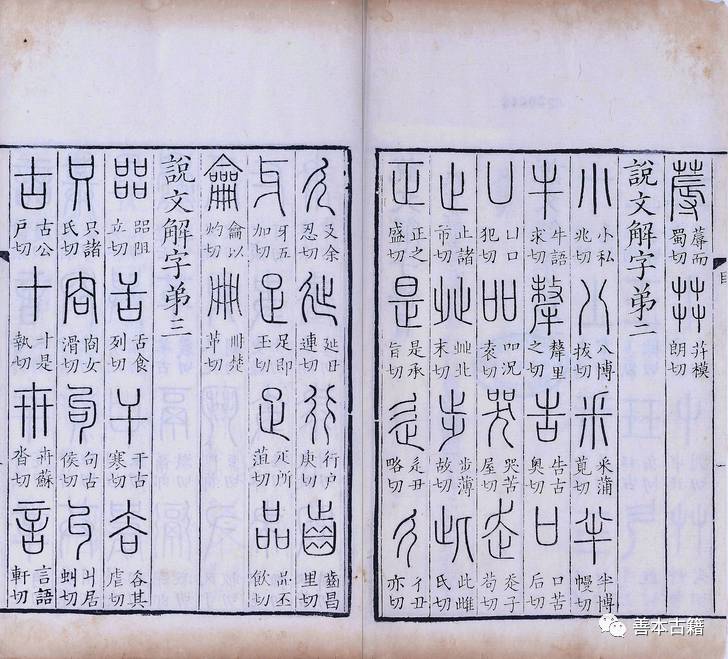 蓐 蓐而蜀切 茻 茻模朗切
說文解字弟二
小 小私兆切 八 八博拔切 釆 釆蒲莧切 半 半博幔切
牛 牛語求切 犛 犛里之切 告 告古奧切 口 口苦后切
凵 凵口犯切 吅 吅况袁切 哭 哭苦屋切 走 走子苟切
止 止諸市切 癶 癶北末切 步 步薄故切 此 此雌氏切
正 正之盛切 是 是承旨切 辵 辵丑略切 彳 彳丑亦切
廴 廴余忍切 㢟 㢟丑連切 行 行戶庚切 齒 齒昌里切
牙 牙五加切 足 足即玉切 疋 疋所菹切 品 品丕飲切
龠 龠以灼切 冊 冊楚革切
說文解字弟三
㗊 㗊阻立切 舌 舌食列切 干 干古寒切 𧮫 𧮫其虐切
只 只諸氏切 㕯 㕯女滑切 句 句古侯切 丩 丩居虯切
古 古公戶切 十 十是執切 卅 卅蘇沓切 言 言語軒切
善本古籍